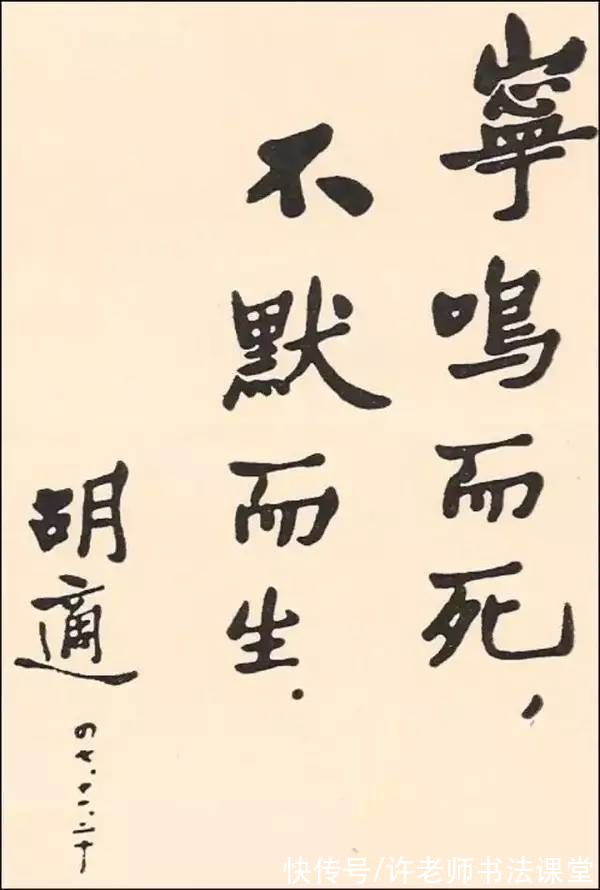 寧鳴而死,
不默而生.
胡適
四七.十一.二十
快传号/许老师书法课堂